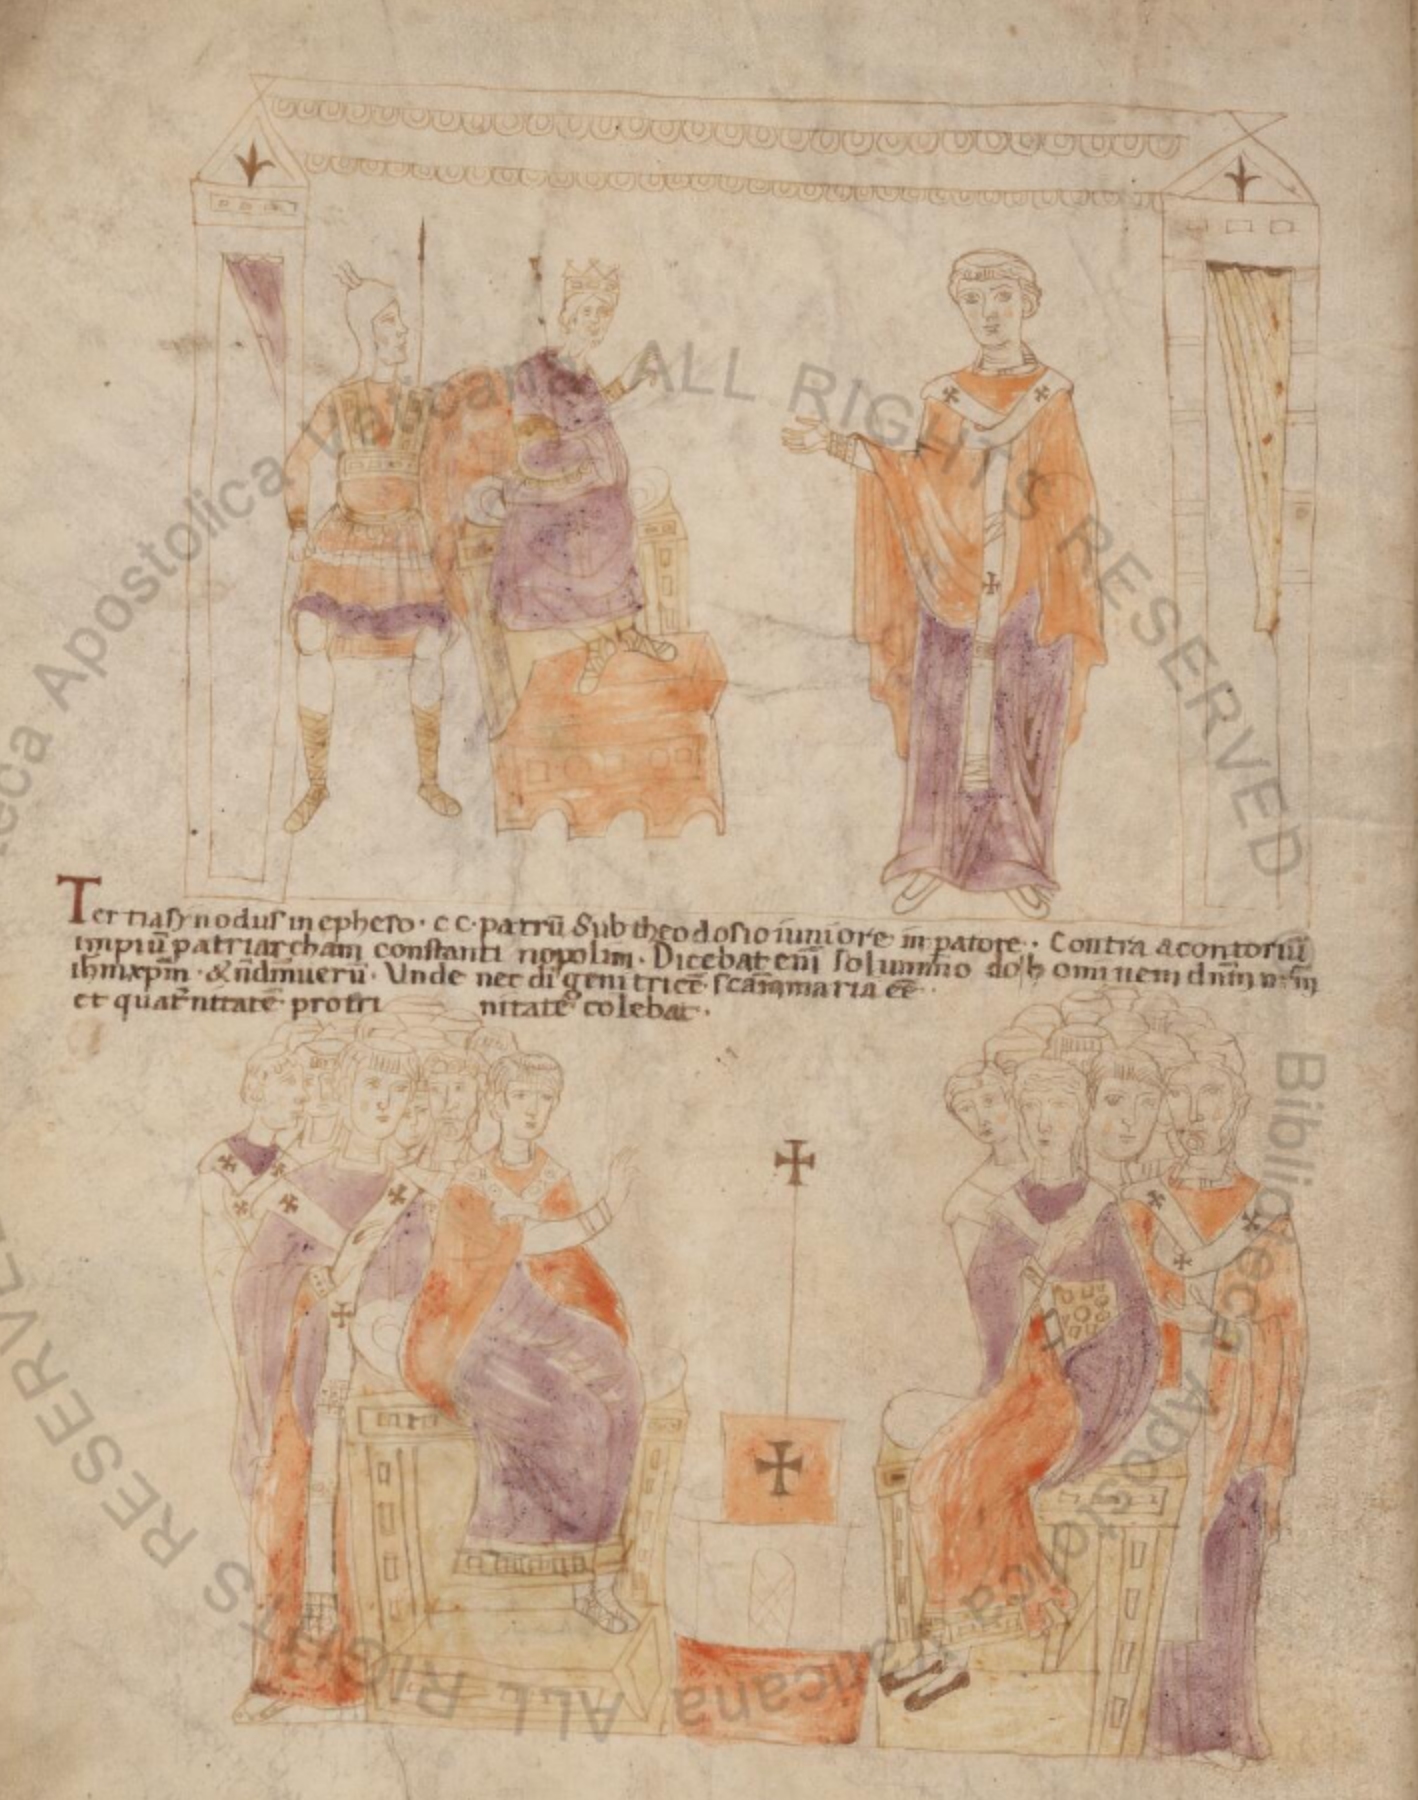 Tertia synodus in epheso · cc · patrū Sub theodosio iuniore inpatore · Contra acontorium
impiū patriarcham constanti nopolim · Dicebat enī solummo do hominem dn̄m nr̄m
ihm xpm · & n̄ dm̄ uerū · Unde nec di genitricē scam maria eē ·
et quat̄nitatē pro tri nitate colebat ·
Biblioteca Apostolica Vaticana ALL RIGHTS RESERVED